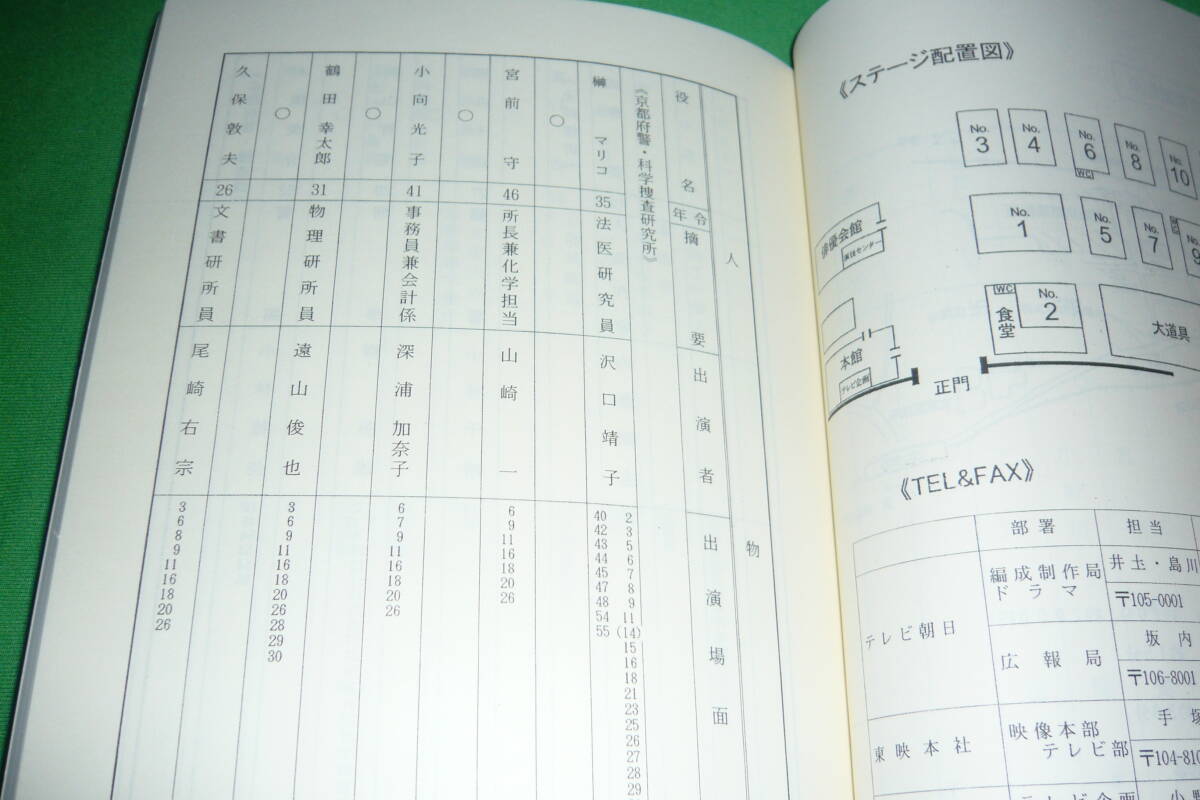 人
物
役名
年令
摘要
出演者
出演場面
《京都府警・科学捜査研究所》
榊マリコ
35
法医研究員
沢口靖子
2
3
5
6
7
8
9
11
(14)
15
16
18
21
23
25
26
27
28
29
40
42
43
44
45
47
48
54
55
○
宮前守
46
所長兼化学担当
山崎一
6
9
11
16
18
20
26
○
小向光子
41
事務員兼会計係
深浦加奈子
6
7
9
11
16
18
20
26
○
鶴田幸太郎
31
物理研所員
遠山俊也
3
6
9
11
16
18
20
26
28
29
30
○
久保敦夫
26
文書研所員
尾崎右宗
3
6
8
9
11
16
18
20
26
《ステージ配置図》
No. 3
No. 4
No. 6
WC
No. 8
No. 10
No. 1
No. 5
No. 7
No. 9
俳優会館
WC
No. 2
食堂
大道具
本館
テレビ企画
正門
《TEL&FAX》
部署
担当
テレビ朝日
編成制作局
ドラマ
井土・島川
〒105-0001
広報局
坂内
〒106-8001
東映本社
映像本部
テレビ部
手塚
〒104-810
テレビ企画
小野